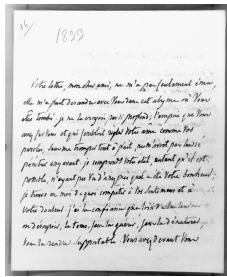 16
1899
Votre lettre, mon cher ami, ne m'a pas seulement émue,
elle m'a fait descendre avec Vous dans cet abyme où Vous
êtes tombé. je ne le croyois pas si profond; l'empire que Vous
avez sur Vous et qui sembloit régler Votre âme comme Vos
paroles, sans me tromper tout à fait, ne m'avoit pas laissé
pénétrer si avant. je comprends votre état, autant qu'il est
possible, n'ayant pas Vu d'assez près quel a été Votre bonheur;
je trouve en moi de quoi compatir à Vos sentimens et à
votre douleur. j'ai la confiance que
ou d'évasion, le tems, sans la guérir, sans la dénaturer
vous la rendra supportable. Vous avez devant Vous